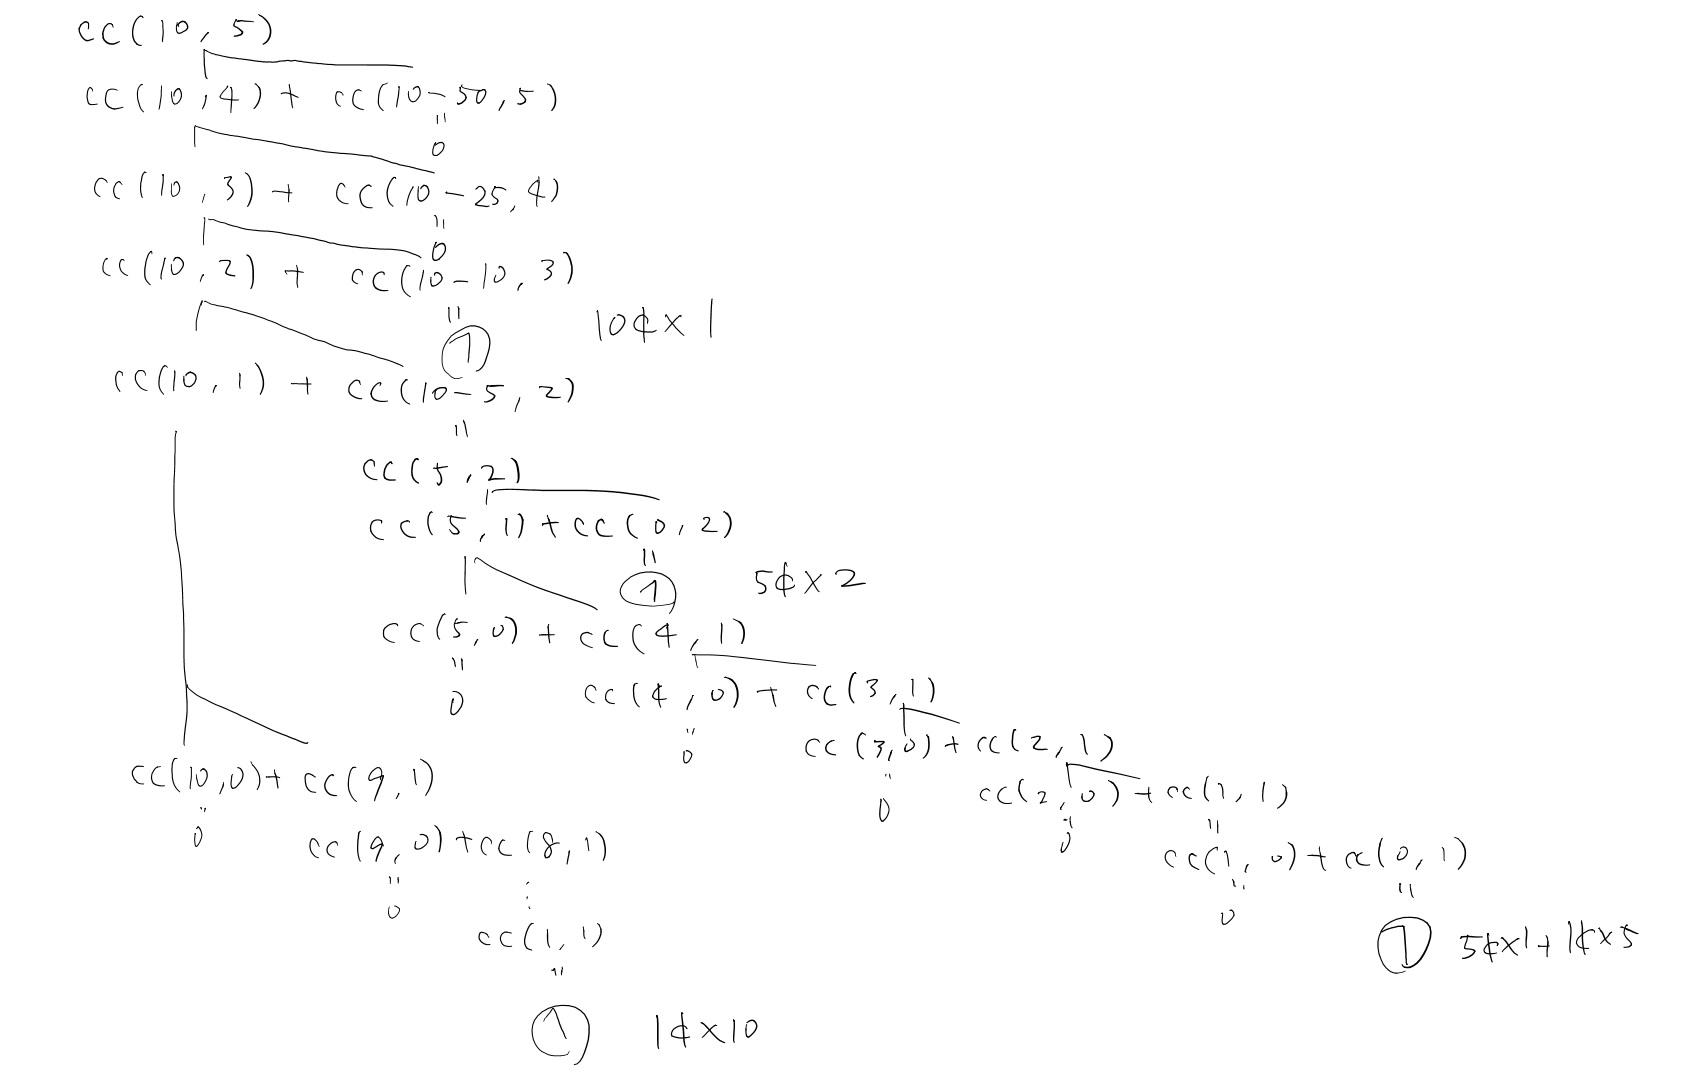 cc(10, 5)
cc(10, 4) + cc(10-50, 5)
"
0
cc(10, 3) + cc(10-25, 4)
"
0
cc(10, 2) + cc(10-10, 3)
"
1 10¢×1
cc(10, 1) + cc(10-5, 2)
"
cc(5, 2)
cc(5, 1) + cc(0, 2)
"
1 5¢×2
cc(5, 0) + cc(4, 1)
"
0
cc(4, 0) + cc(3, 1)
"
0
cc(3, 0) + cc(2, 1)
"
0
cc(2, 0) + cc(1, 1)
" "
0
cc(1, 0) + cc(0, 1)
" "
0
1 5¢×1 + 1¢×5
cc(10, 0) + cc(9, 1)
"
0
cc(9, 0) + cc(8, 1)
" ⋮
0
cc(1, 1)
"
1 1¢×10